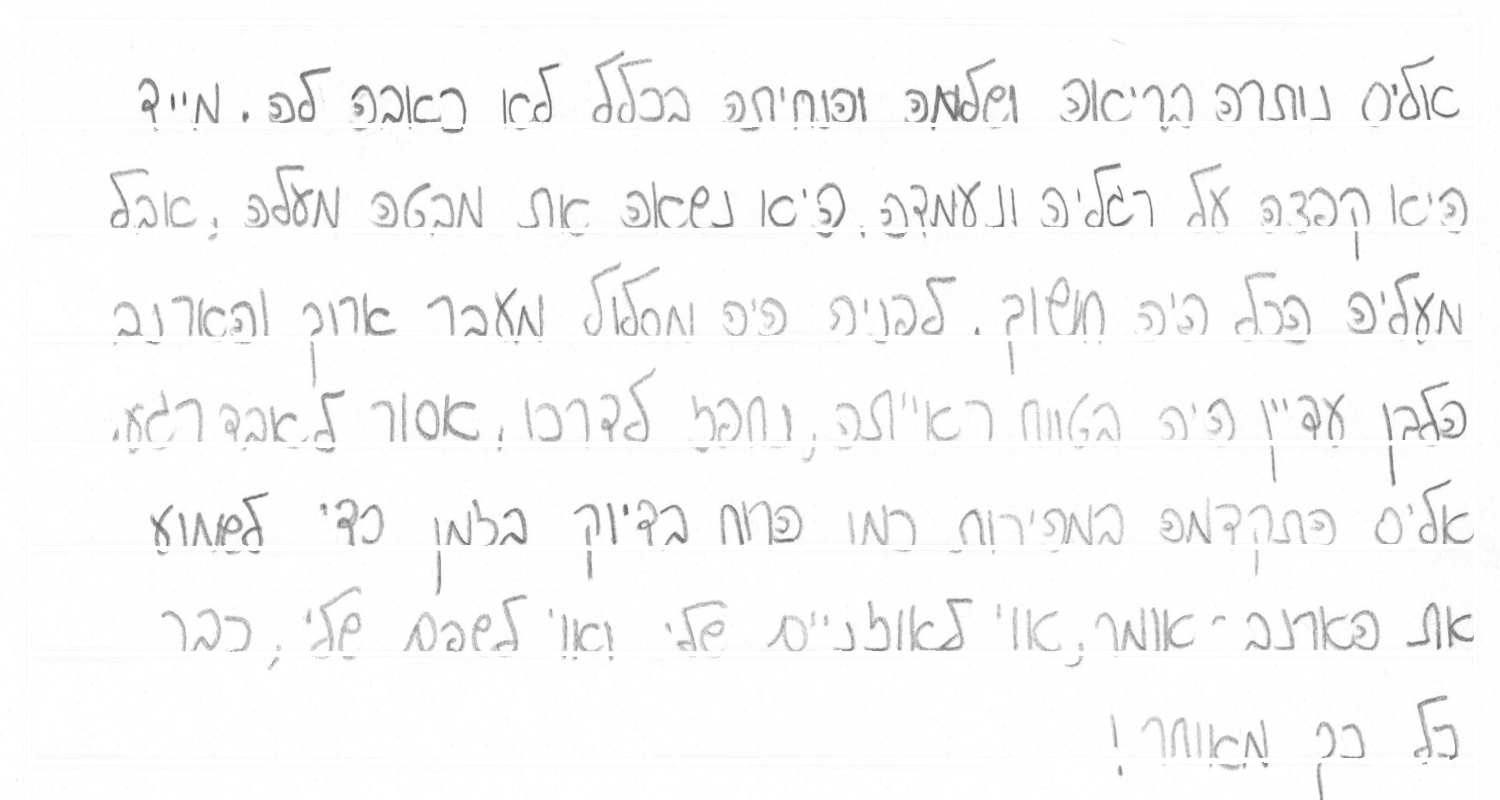 אליס נותרה בריאה ושלמה והנחיתה בכלל לא כאבה לה. מייד
היא קפצה על רגליה ונעמדה. היא נשאה את מבטה מעלה, אבל
מעליה הכל היה חשוך. לפניה היה מסלול מעבר ארוך והארנב
הלבן עדיין היה בטווח ראייתה, נחפז לדרכו, אסור לאבד רגע.
אליס התקדמה במהירות כמו הרוח בדיוק בזמן כדי לשמוע
את הארנב - אומר, אוי לאוזניים שלי ואוי לשפם שלי, כבר
כל כך מאוחר!